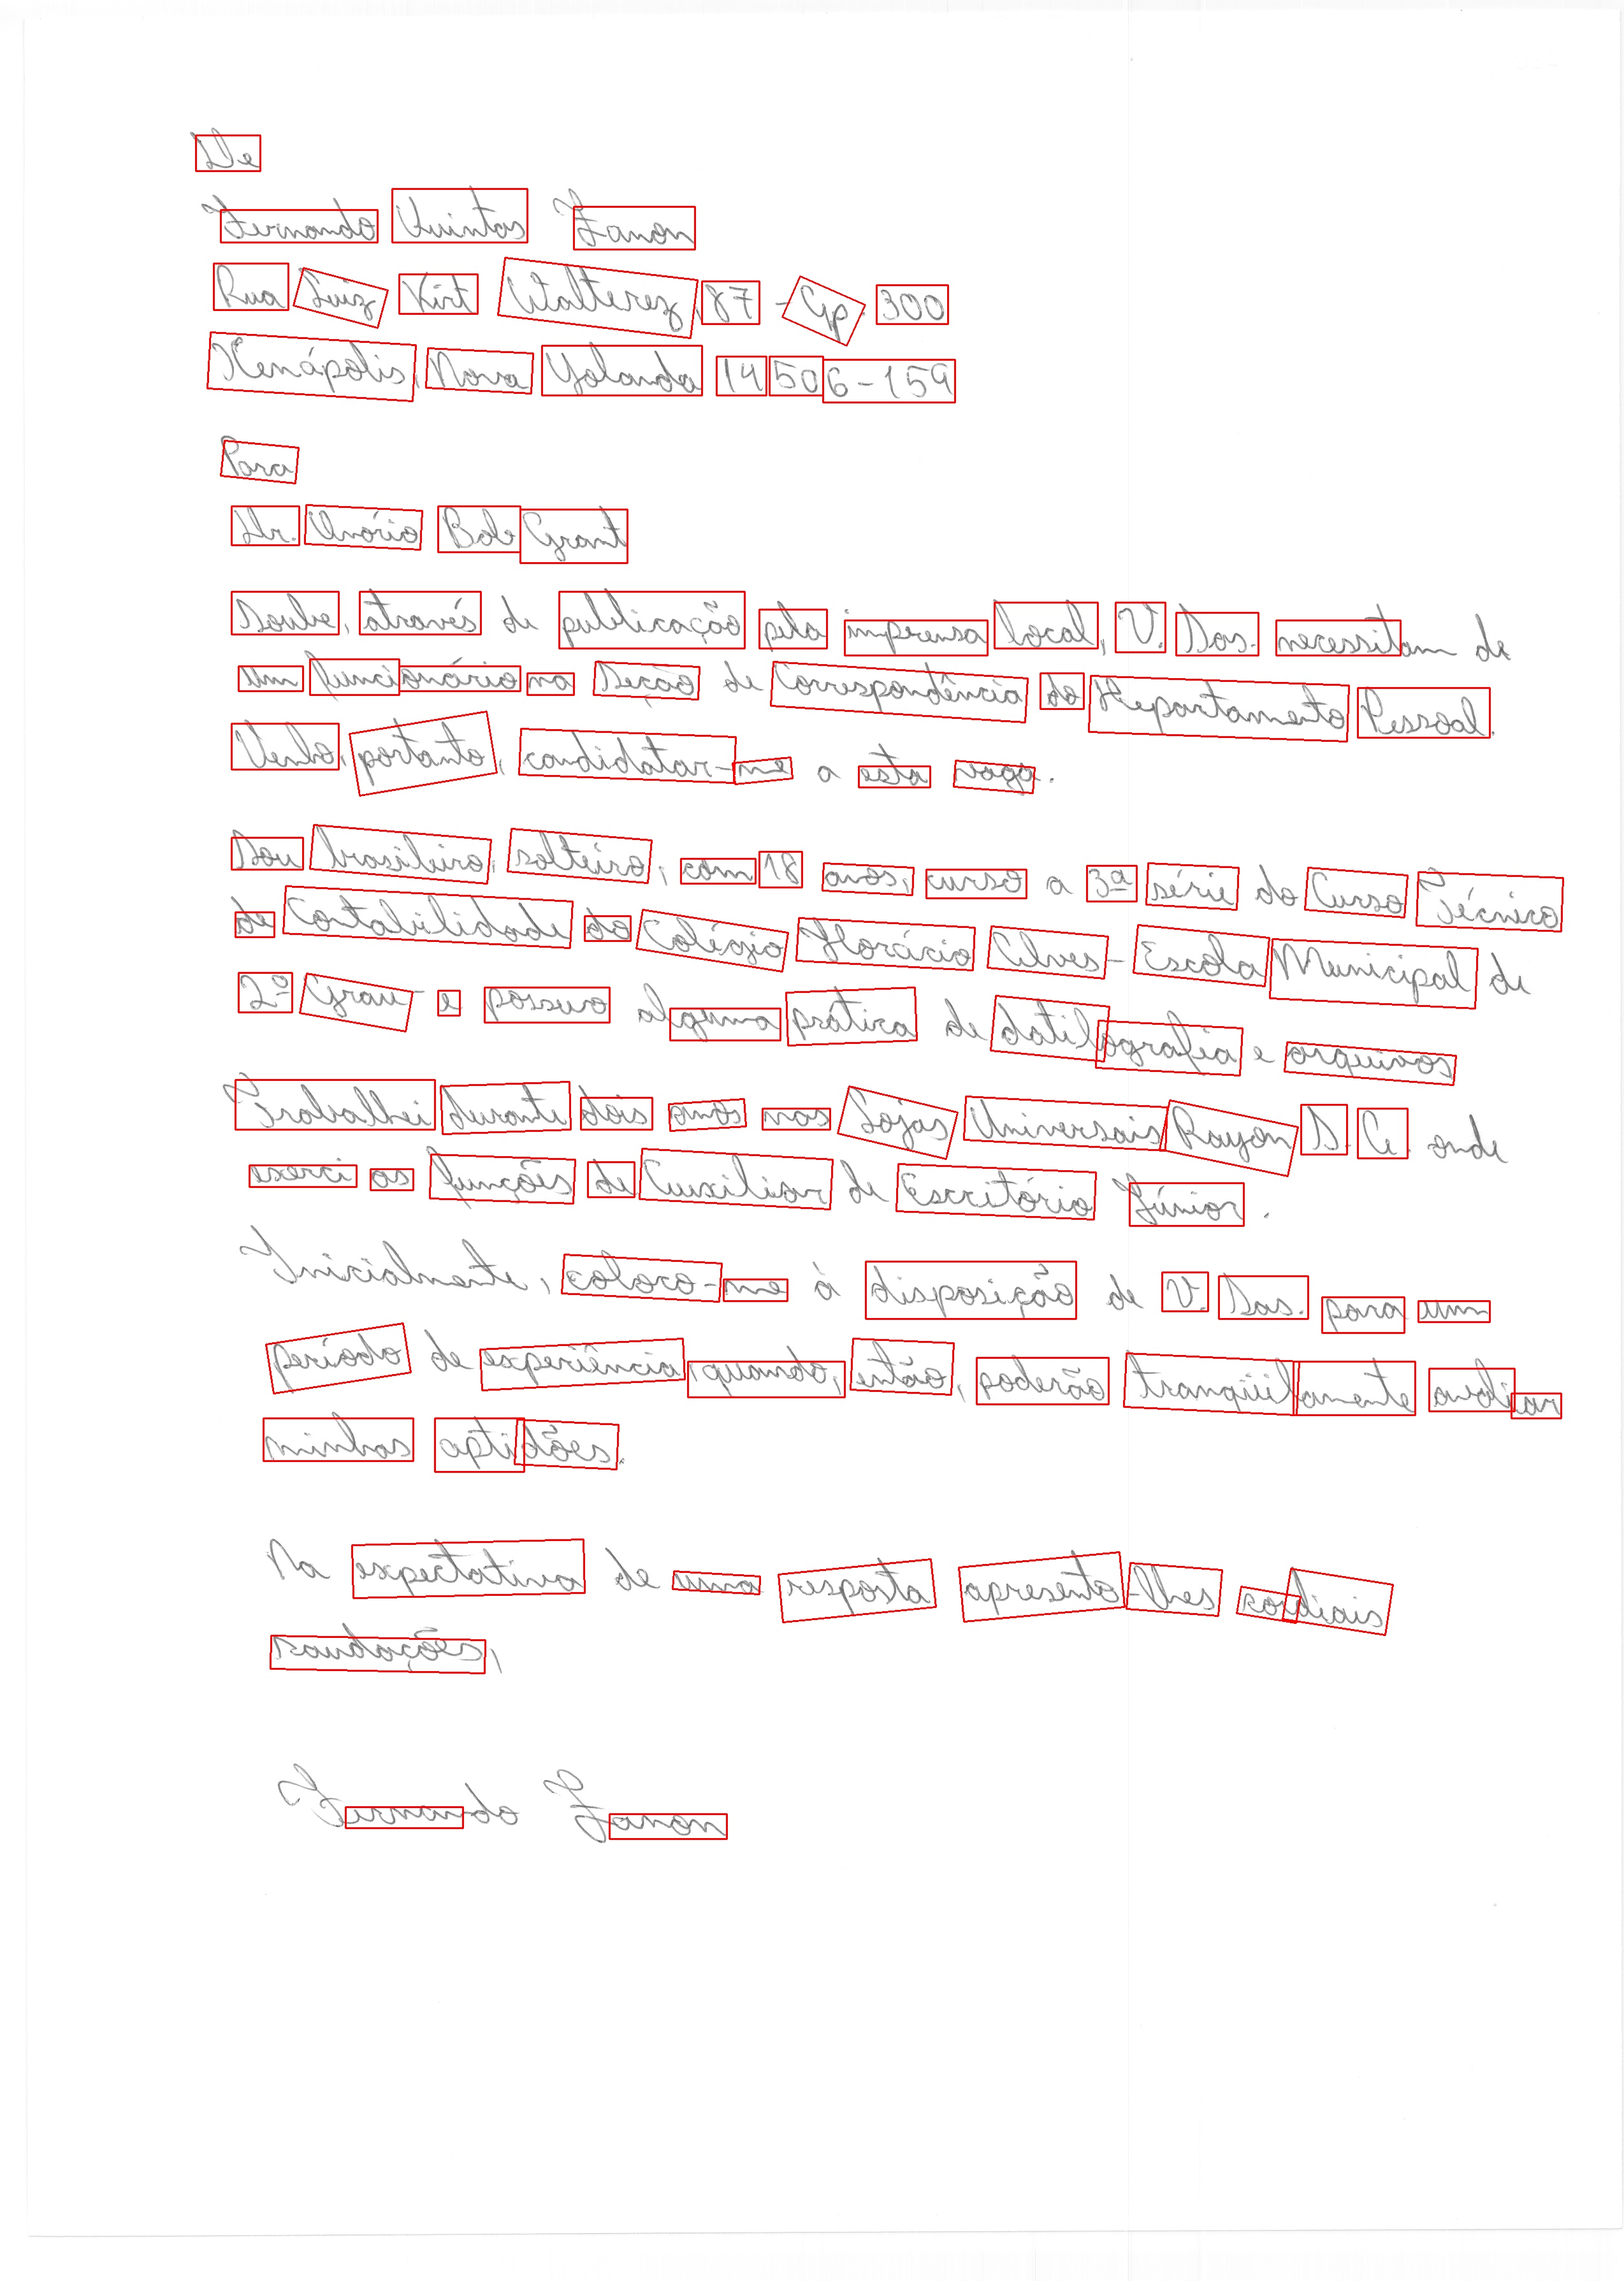 De
Fernando Quintas Zanon
Rua Luiz Kirt Vitalterez, 87 - Ap. 300
Xenápolis, Nova Yolanda 14506-159
Para
Dr. Onório Bob Grant
Soube, através de publicação pela imprensa local, V. Sas. necessitam de
um funcionário na Seção de Correspondência do Departamento Pessoal.
Venho, portanto, candidatar-me a esta vaga.
Sou brasileiro, solteiro, com 18 anos, curso a 3ª série do Curso Técnico
de Contabilidade do Colégio Horácio Alves - Escola Municipal de
2º Grau - e possuo alguma prática de datilografia e arquivos
Trabalhei durante dois anos nas Lojas Universais Rayon S. A. onde
exerci as funções de Auxiliar de Escritório Júnior.
Inicialmente, coloco-me à disposição de V. Sas. para um
período de experiência, quando, então, poderão tranqüilamente avaliar
minhas aptidões.
Na expectativa de uma resposta apresento-lhes cordiais
saudações,
Fernando Zanon